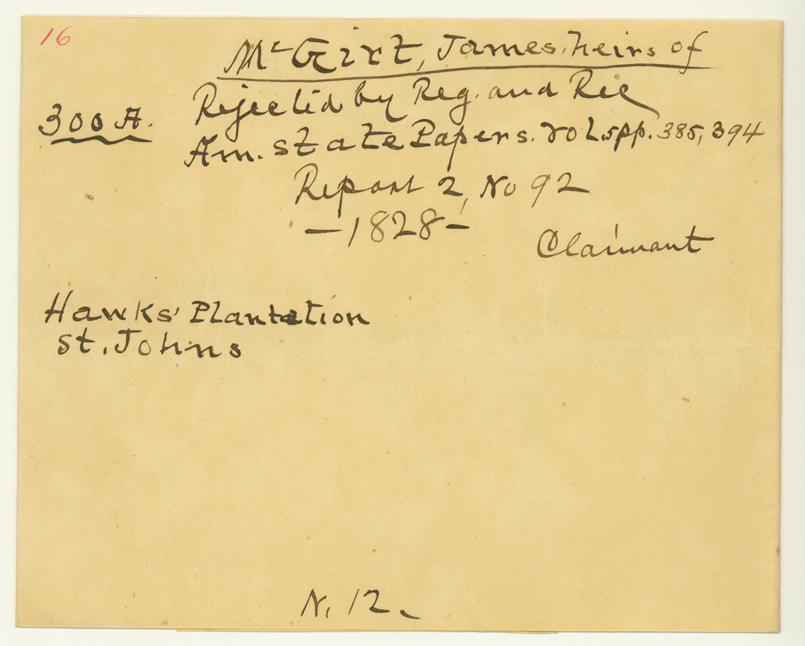 16
McGirt, James, heirs of
300 A.
Rejected by Reg. and Rec
Am. State Papers. vol.5pp. 385, 394
Report 2, No 92
-1828-
Claimant
Hawks' Plantation
St. Johns
N. 12.